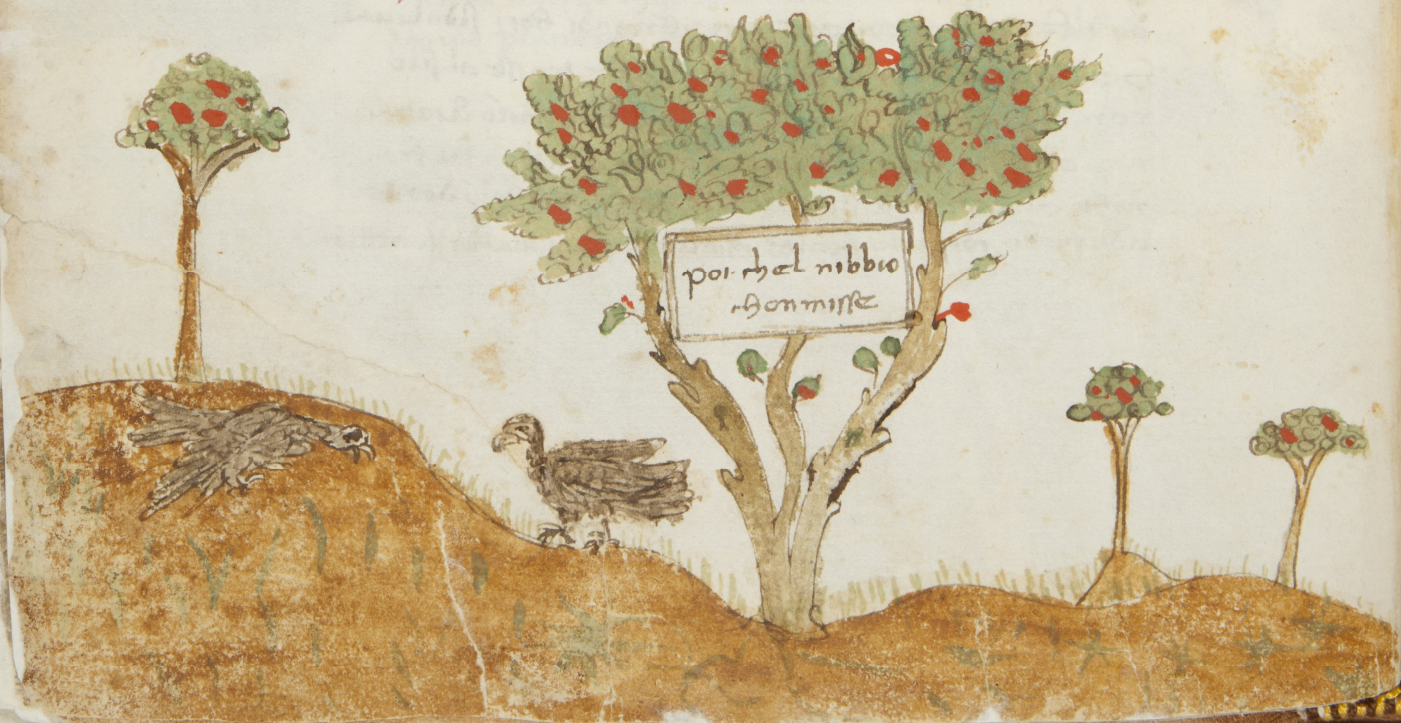 poi chel nibbio
chommisse